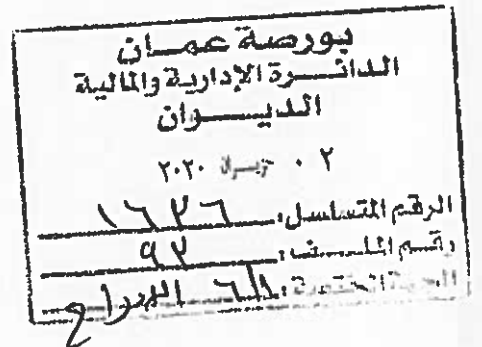 بورصة عمـــان
الدائـــرة الإدارية والمالية
الديـــوان
٠٢ حزيران ٢٠٢٠
الرقم المتسلسل: ١٦٢٦
رقم الملف: ٩٢
الجهة المختصة: الإدراج